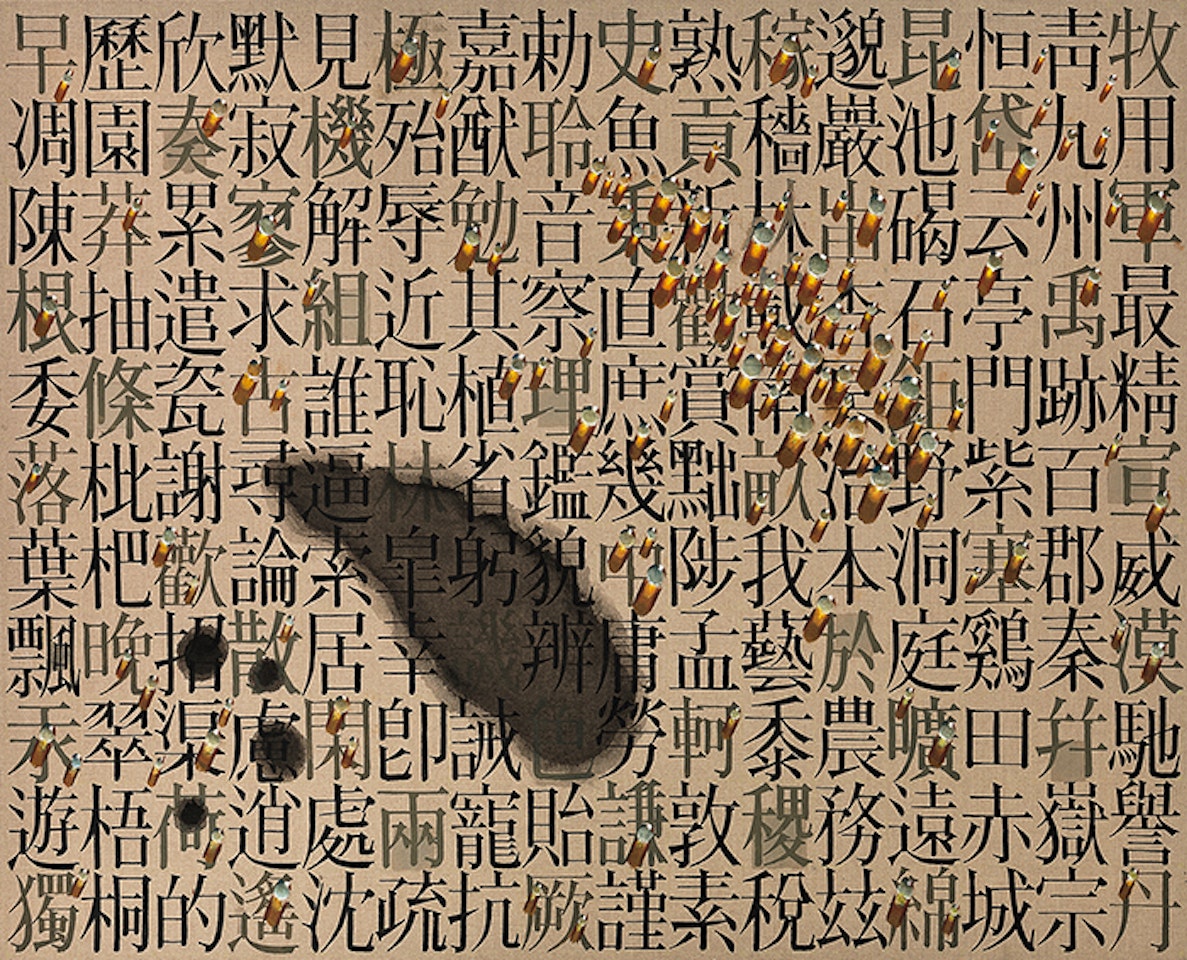 牧用軍最精宣威漠馳譽丹
靑九州禹跡百郡秦幷嶽宗
恒岱云亭門紫塞鷄田赤城
昆池碣石鉅野洞庭曠遠綿
邈巖岫杳冥治本於農務玆
稼穡載南畝我藝黍稷稅
熟貢新勸賞黜陟孟軻敦素
史魚秉直庶幾中庸勞謙謹
勅聆音察理鑑貌辨色貽厥
嘉猷勉其植省躬譏誡寵抗
極殆辱近恥林皐幸卽兩疏
見機解組誰逼索居閑處沈
默寂寥求古尋論散慮逍遙
欣奏累遣瓷謝歡招渠荷的
歷園莽抽條枇杷晚翠梧桐
早凋陳根委落葉飄遊獨